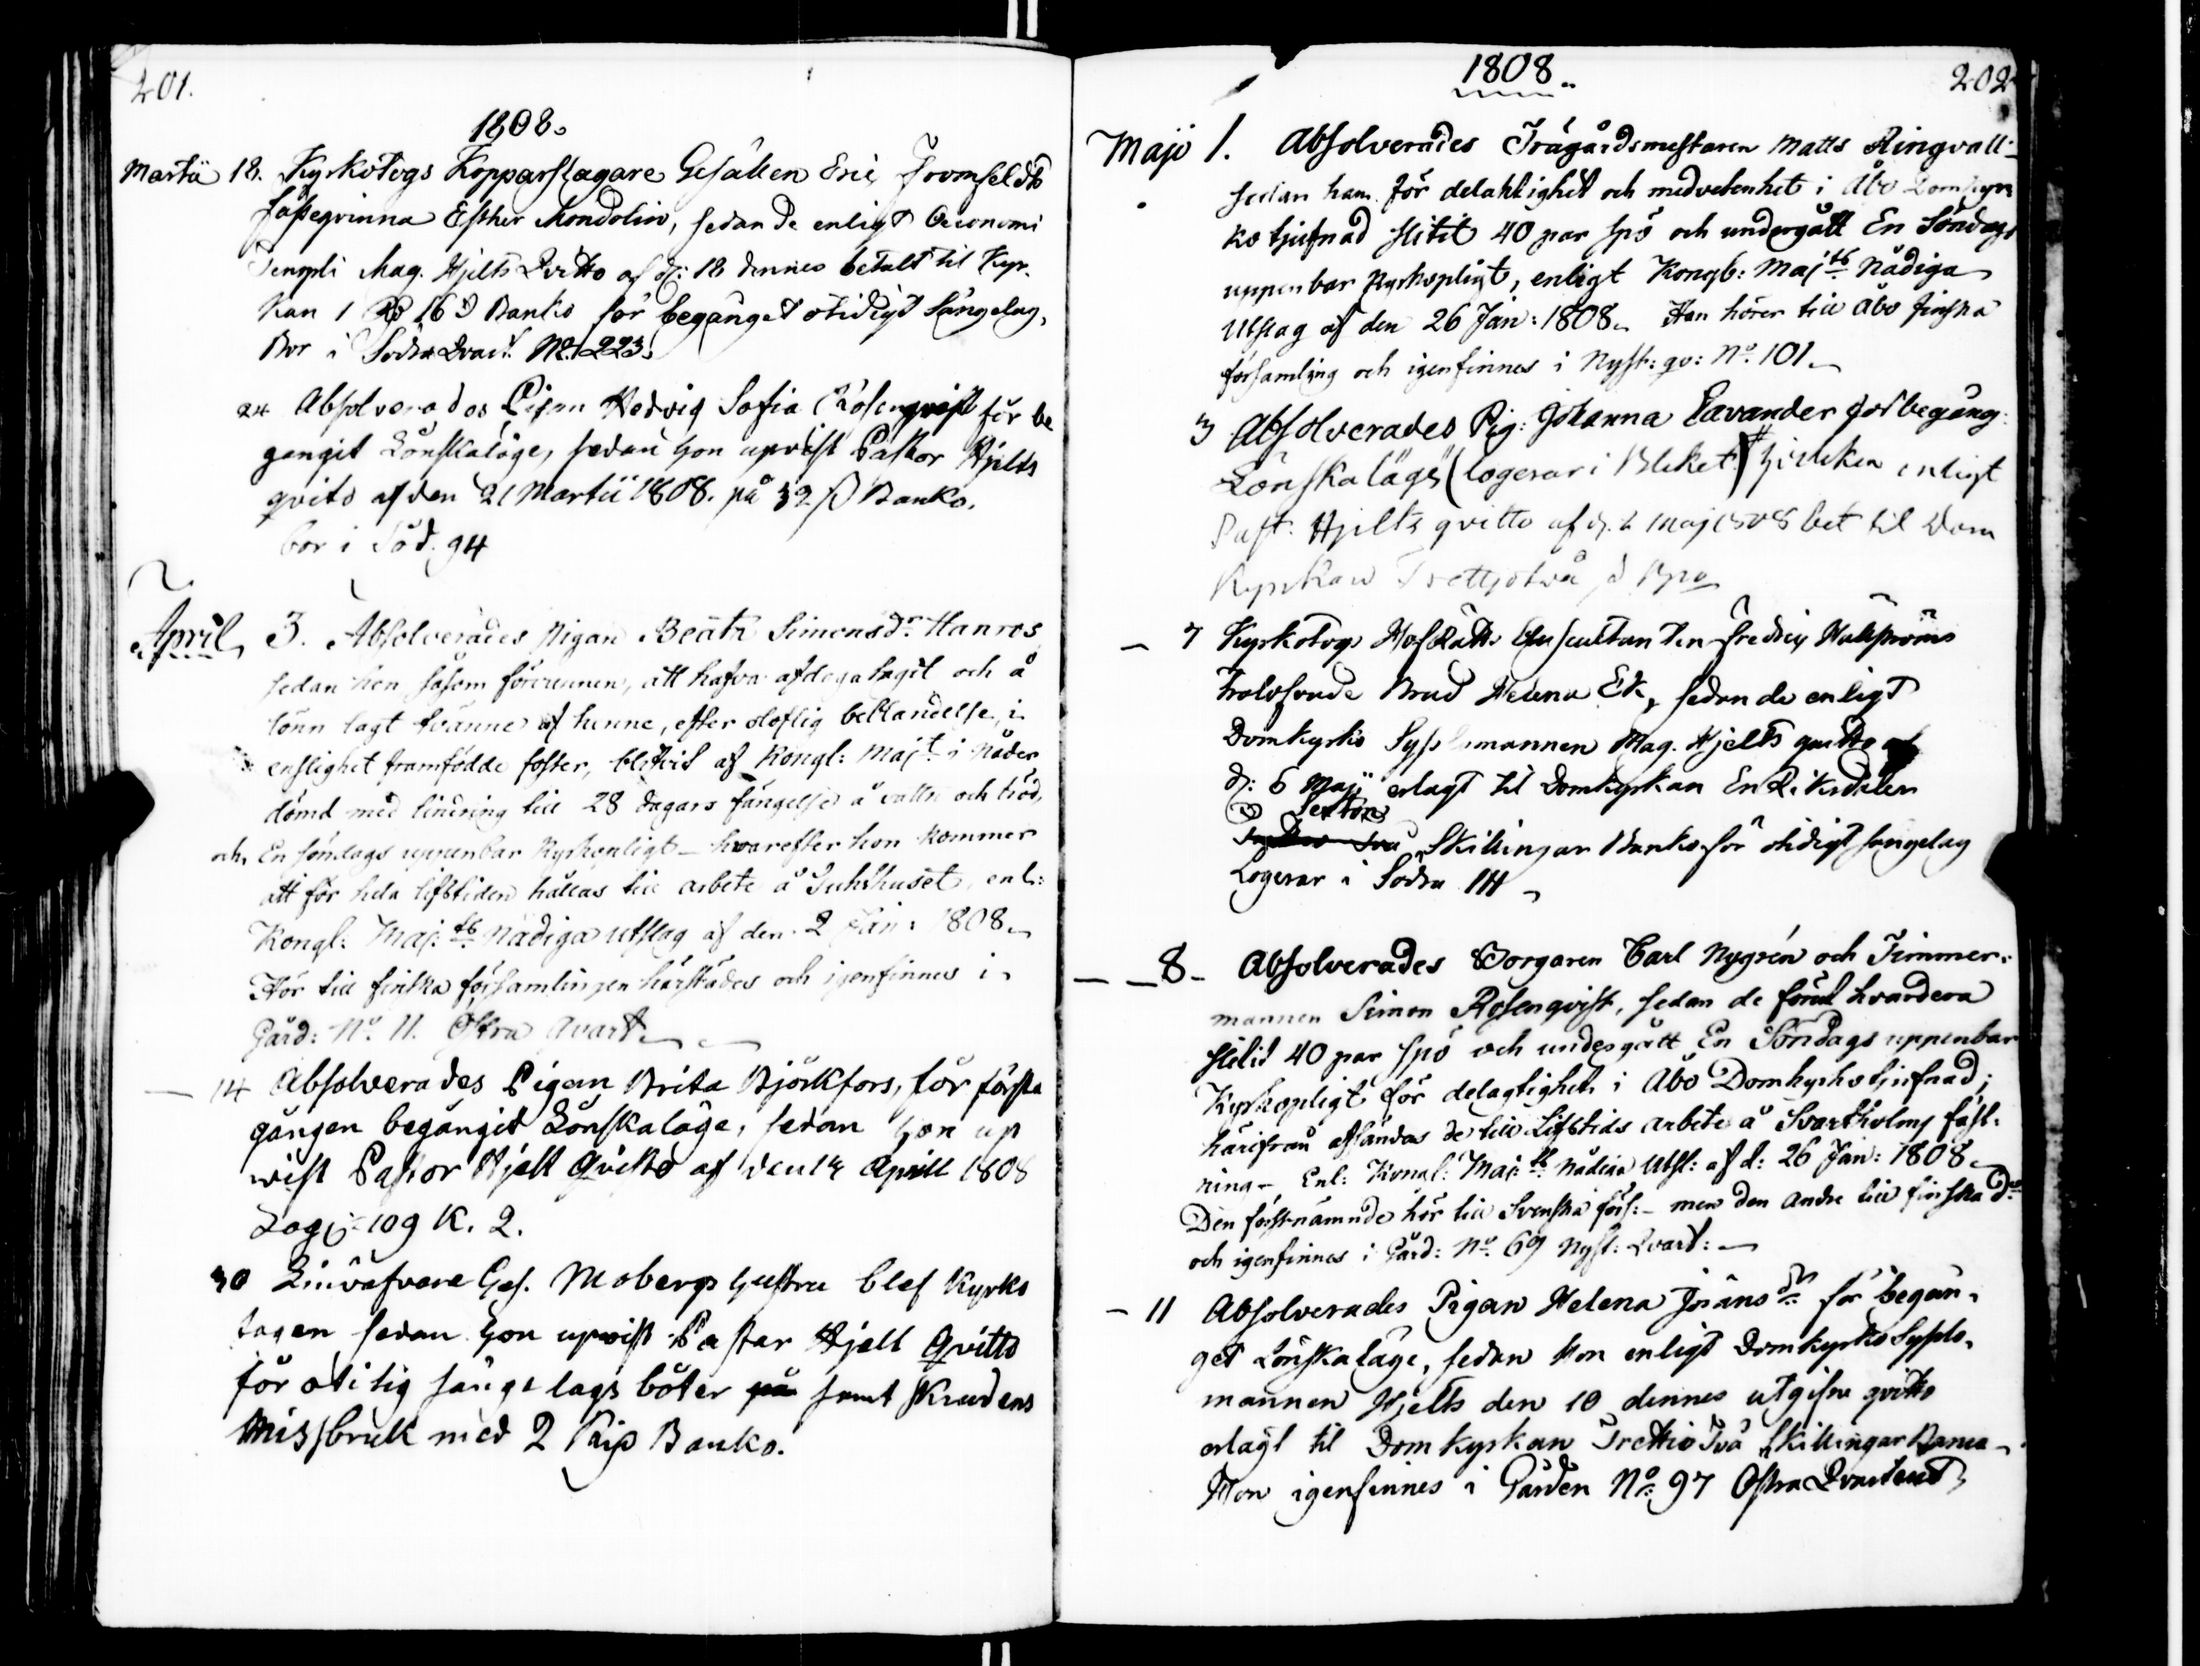 201.
1808.
Martii 18. Kyrkotogs Kopparslagare Gesällen Eric Fromfeldts
Fästeqvinna Esther Mondolin, sedan de enligt Oeconomi
Templi Mag. Hjelts Qvitto af d: 18 dennes betalt til Kyr-
kan 1 Rd 16 s Banko för begånget otidigt Sängelag,
Bor i Södra Qvart. No. 223.
24 Absolverades Pigan Hedvig Sofia Rosenqvist för be
gangit Lönskaläge, sedan hon upvist Pastor Hjelts
qvito af den 21 Martii 1808. på 32 s Banko.
bor i Söd. 94
April 3. Absolverades Pigan Beata Simonsdr Hanros
sedan hon såsom förvunnen, att hafva afdaga tagit och å
lönn lagt tvänne af henne, efter oloflig beblandelse, i
enslighet framfödde foster, blifvit af Kongl: Majt i Nåder
dömd med lindring till 28 dagars fängelse å vatten och bröd,
och En söndags uppenbar Kyrkopligt - hvarefter hon kommer
att för hela lifstiden hållas till arbete å Tukthuset, enl:
Kongl: Maj:ts Nådiga utslag af den 2 Jan: 1808.
Hör till finska församlingen härstädes och igenfinnes i
Gård: No. 11. Östra Qvart.
14 Absolverades Pigan Brita Björkfors, för första
gången begångit Lönskaläge, sedan hon up
wist Pastor Hjelt Qvitto af den 14 Aprill 1808
Log: 109 K. 2.
30 Linväfvare Ges. Mobergs hustru blef Kyrko
tagen sedan hon upwist Pastor Hjelt Qvitto
för otidig sänge lags böter på samt Skrudens
Missbruk med 2 Rip Banko.
1808.
202
Maji 1. Absolverades Trägårdsmestaren Matts Ringvall
sedan han för delaktighet och medvetenhet i Åbo Domkyr
ko tjufnad slitit 40 par spö och undergått En Söndags
uppenbar Kyrkopligt, enligt Kongl: Majts Nådiga
Utslag af den 26 Jan: 1808. Han hörer till Åbo finska
församling och igenfinnes i Nyst: qv: No. 101.
3 Absolverades Pig: Johanna Lavander för begång:
Lönskaläge (logerar i Bleket) hvilken enligt
Past. Hjelts qvitto af d. 2 Maj 1808 bet til Dom
Kyrkan Trettiotvå s Bco
7 Kyrkotogs HofRätts Auscultanten Fredric Hallströms
Trolofvade Brud Helena Ek, sedan de enligt
Domkyrko Sysslomannen Mag. Hjelts qvitto af
d: 6 Maji erlagt til Domkyrkan En Riksdaler
Sexton
Trettio två Skillingar Banko för otidigt sängelag
Logerar i Södra 114
8 Absolverades Borgaren Carl Nygrén och Timmer-
mannen Simon Rosenqvist, sedan de förut hvardera
slitit 40 par spö och undergått En Söndags uppenbar
Kyrkopligt för delagtighet i Åbo Domkyrkotjufnad;
härifrån afsändas de till Lifstids arbete å Svartholms fäst-
ning - Enl: Kongl: Maj:ts Nådiga Utsl: af d: 26 Jan: 1808.
Den förstnämnde hör till Svenska förs: - men den andre till finska do
och igenfinnes i Gård: No. 69 Nyst: Qvart:
11 Absolverades Pigan Helena Jöransdr för begån-
get Lönskaläge, sedan hon enligt Domkyrko Sysslo-
mannen Hjelts den 10 dennes utgifne qvitto
erlagt til Domkyrkan Trettio Två Skillingar Banco
Hon igenfinnes i Gården No. 97 Östra Qvarteret